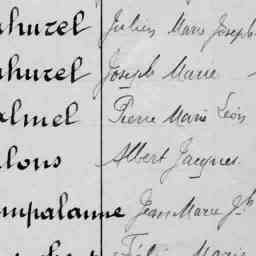 ahurel Julien Marie Joseph
ahurel Joseph Marie
almel Pierre Marie Léon
lons Albert Jacques
mpalanne Jean Marie Jh
Marie